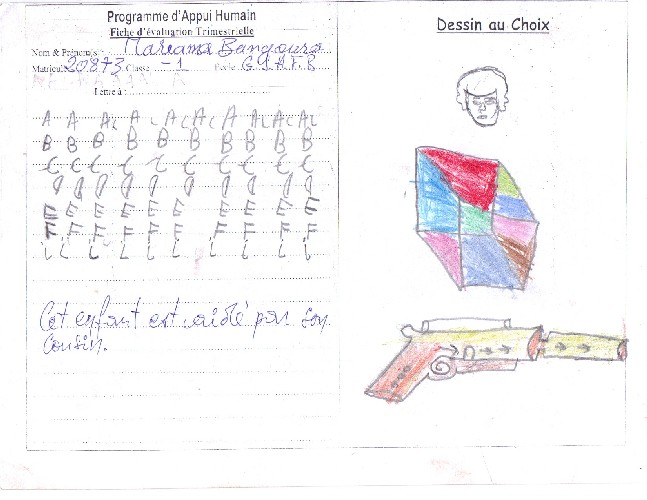 Programme d'Appui Humain
Fiche d'évaluation Trimestrielle
Nom & Prénoms : Mariama Bangoura
Matricule 20873 Classe -1 Ecole
Lettre à :
A A AL A L A L A L A AL AL AL
B B B B B B B B B B
C C C C C C C C C C
E E E E E E E E E
F F F F F F F F F
L L L L L L L L L L
Cet enfant est aidé par son
cousin.
Dessin au Choix